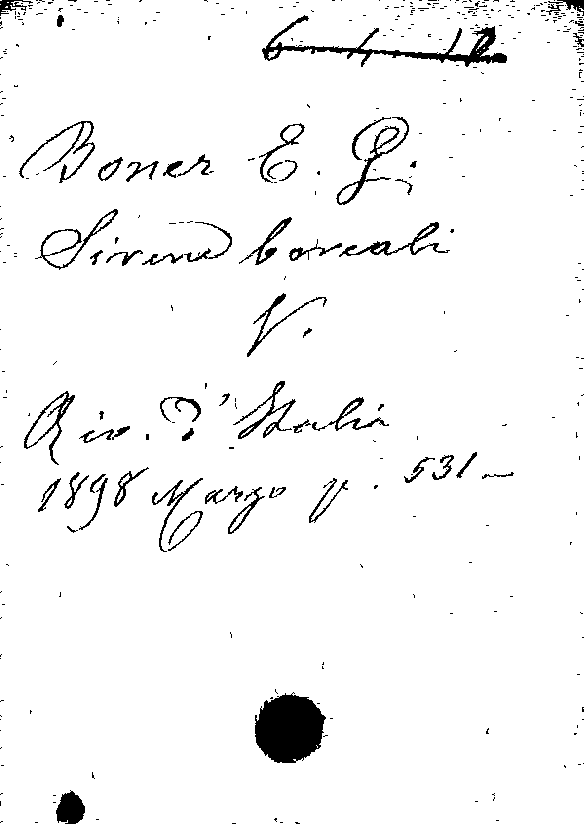 Boner E. G.
Sirene boreali
V.
Riv. d'Italia
1898 Marzo p. 531-